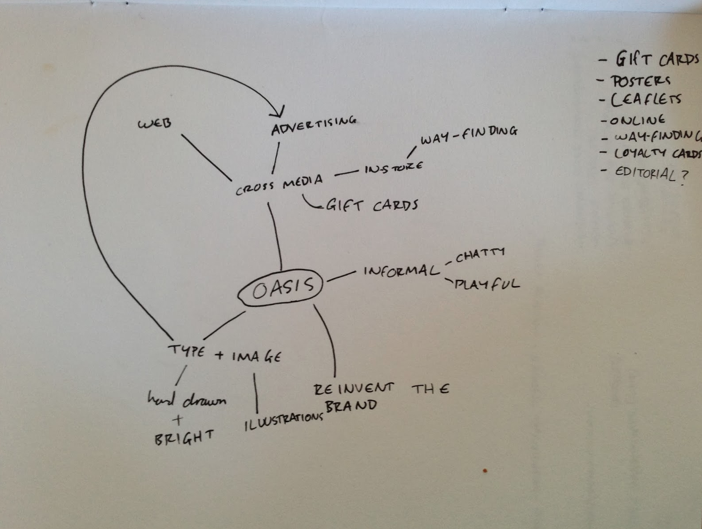 - GIFT CARDS
- POSTERS
- LEAFLETS
- ONLINE
- WAY-FINDING
- LOYALTY CARDS
- EDITORIAL?
WEB
ADVERTISING
WAY-FINDING
CROSS MEDIA
IN-STORE
GIFT CARDS
OASIS
INFORMAL
CHATTY
PLAYFUL
TYPE + IMAGE
hand drawn
+
BRIGHT
ILLUSTRATIONS
REINVENT THE
BRAND